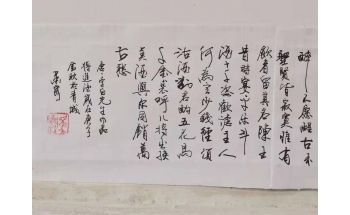 醉不愿醒古来
圣贤皆寂寞惟有
饮者留其名陈王
昔时宴平乐斗
酒十千恣欢谑主人
何为言少钱径须
沽酒对君酌五花马
千金裘呼儿将出换
美酒与尔同销万
古愁
唐李白先生作品
将进酒岁在庚子
金秋于青城